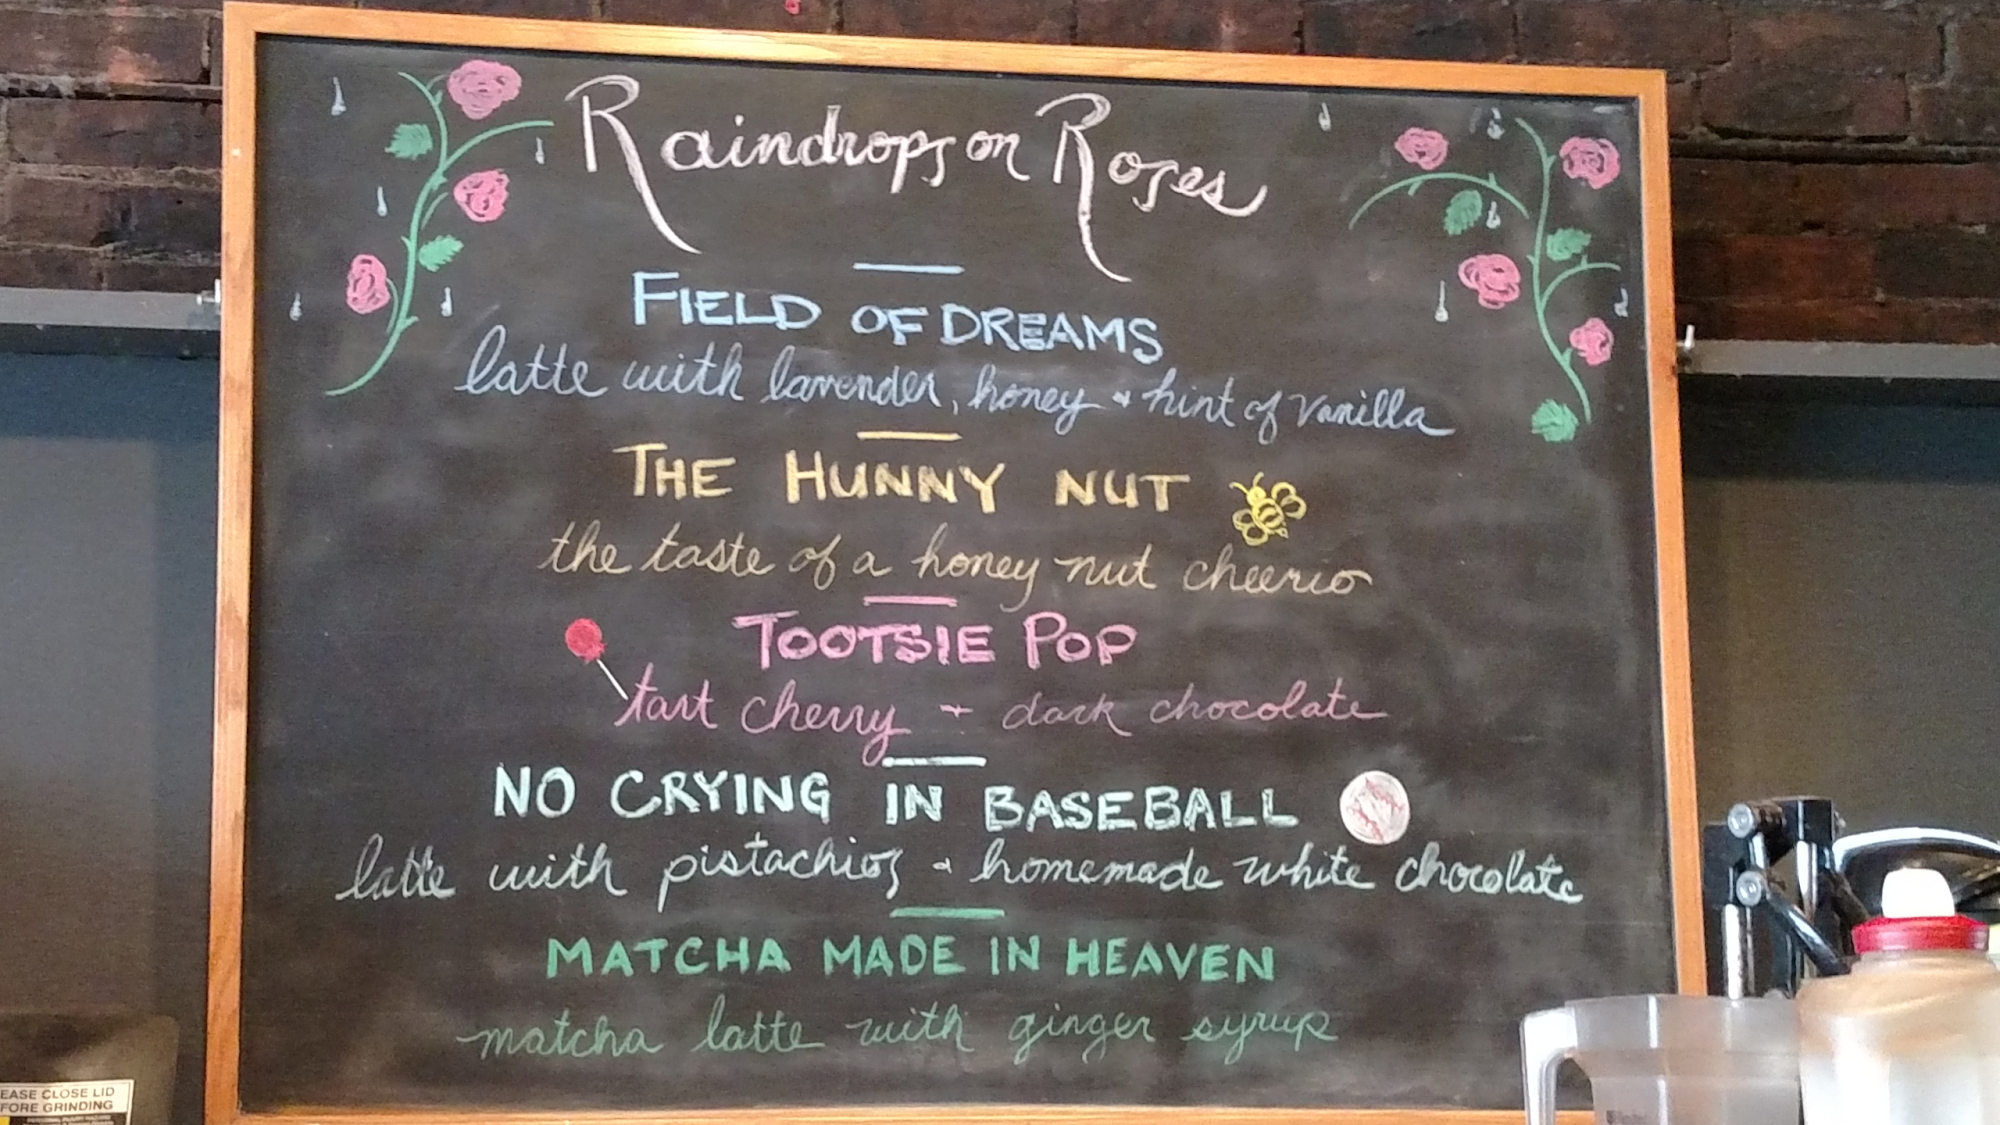 Raindrops on Roses
FIELD OF DREAMS
latte with lavender, honey + hint of vanilla
THE HUNNY NUT
the taste of a honey nut cheerio
TOOTSIE POP
tart cherry + dark chocolate
NO CRYING IN BASEBALL
latte with pistachios + homemade white chocolate
MATCHA MADE IN HEAVEN
matcha latte with ginger syrup
EASE CLOSE LID
FORE GRINDING